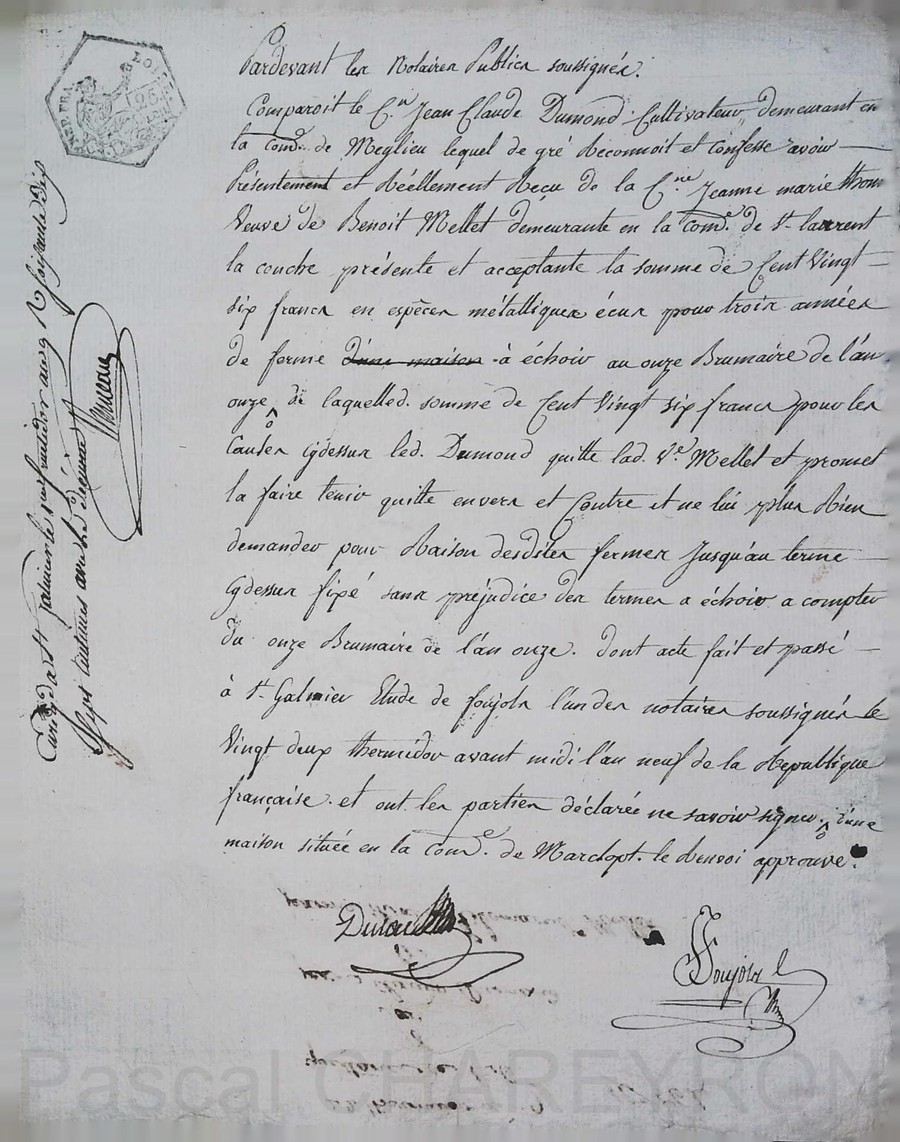 Pardevant les Notaires Publics soussignés.
Comparoit le C.en Jean Claude Dumond Cultivateur demeurant en
la Com.e de Meylieu lequel de gré Reconnoit et confesse avoir
Présentement et Réellement Reçu de la C.ne Jeanne marie thom
Veuve de Benoit Mellet demeurante en la Com.e de St. laurent
la conche présente et acceptante la somme de Cent Vingt
six francs en espèces métalliques écus pour trois années
de ferme d'une maison à échoir au onze Brumaire de l'an
onze, de laquelled. somme de Cent Vingt six francs pour les
Causes cydessus led. Dumond quitte lad. V.e Mellet et promet
la faire tenir quitte envers et Contre et ne lui plus Rien
demander pour Raison desdites fermes Jusqu'au terme
cydessus fixé sans préjudice des termes a échoir a compter
du onze Brumaire de l'an onze. dont acte fait et passé
à St. Galmier Etude de foujols l'un des notaires soussignés le
Vingt deux thermidor avant midi l'an neuf de la République
française. et ont les parties déclaré ne savoir signer. d'une
maison située en la Com.e de Marclopt. le Renvoi approuvé.
Foujols
REP. FRA.
25
Pascal CHAREYRON